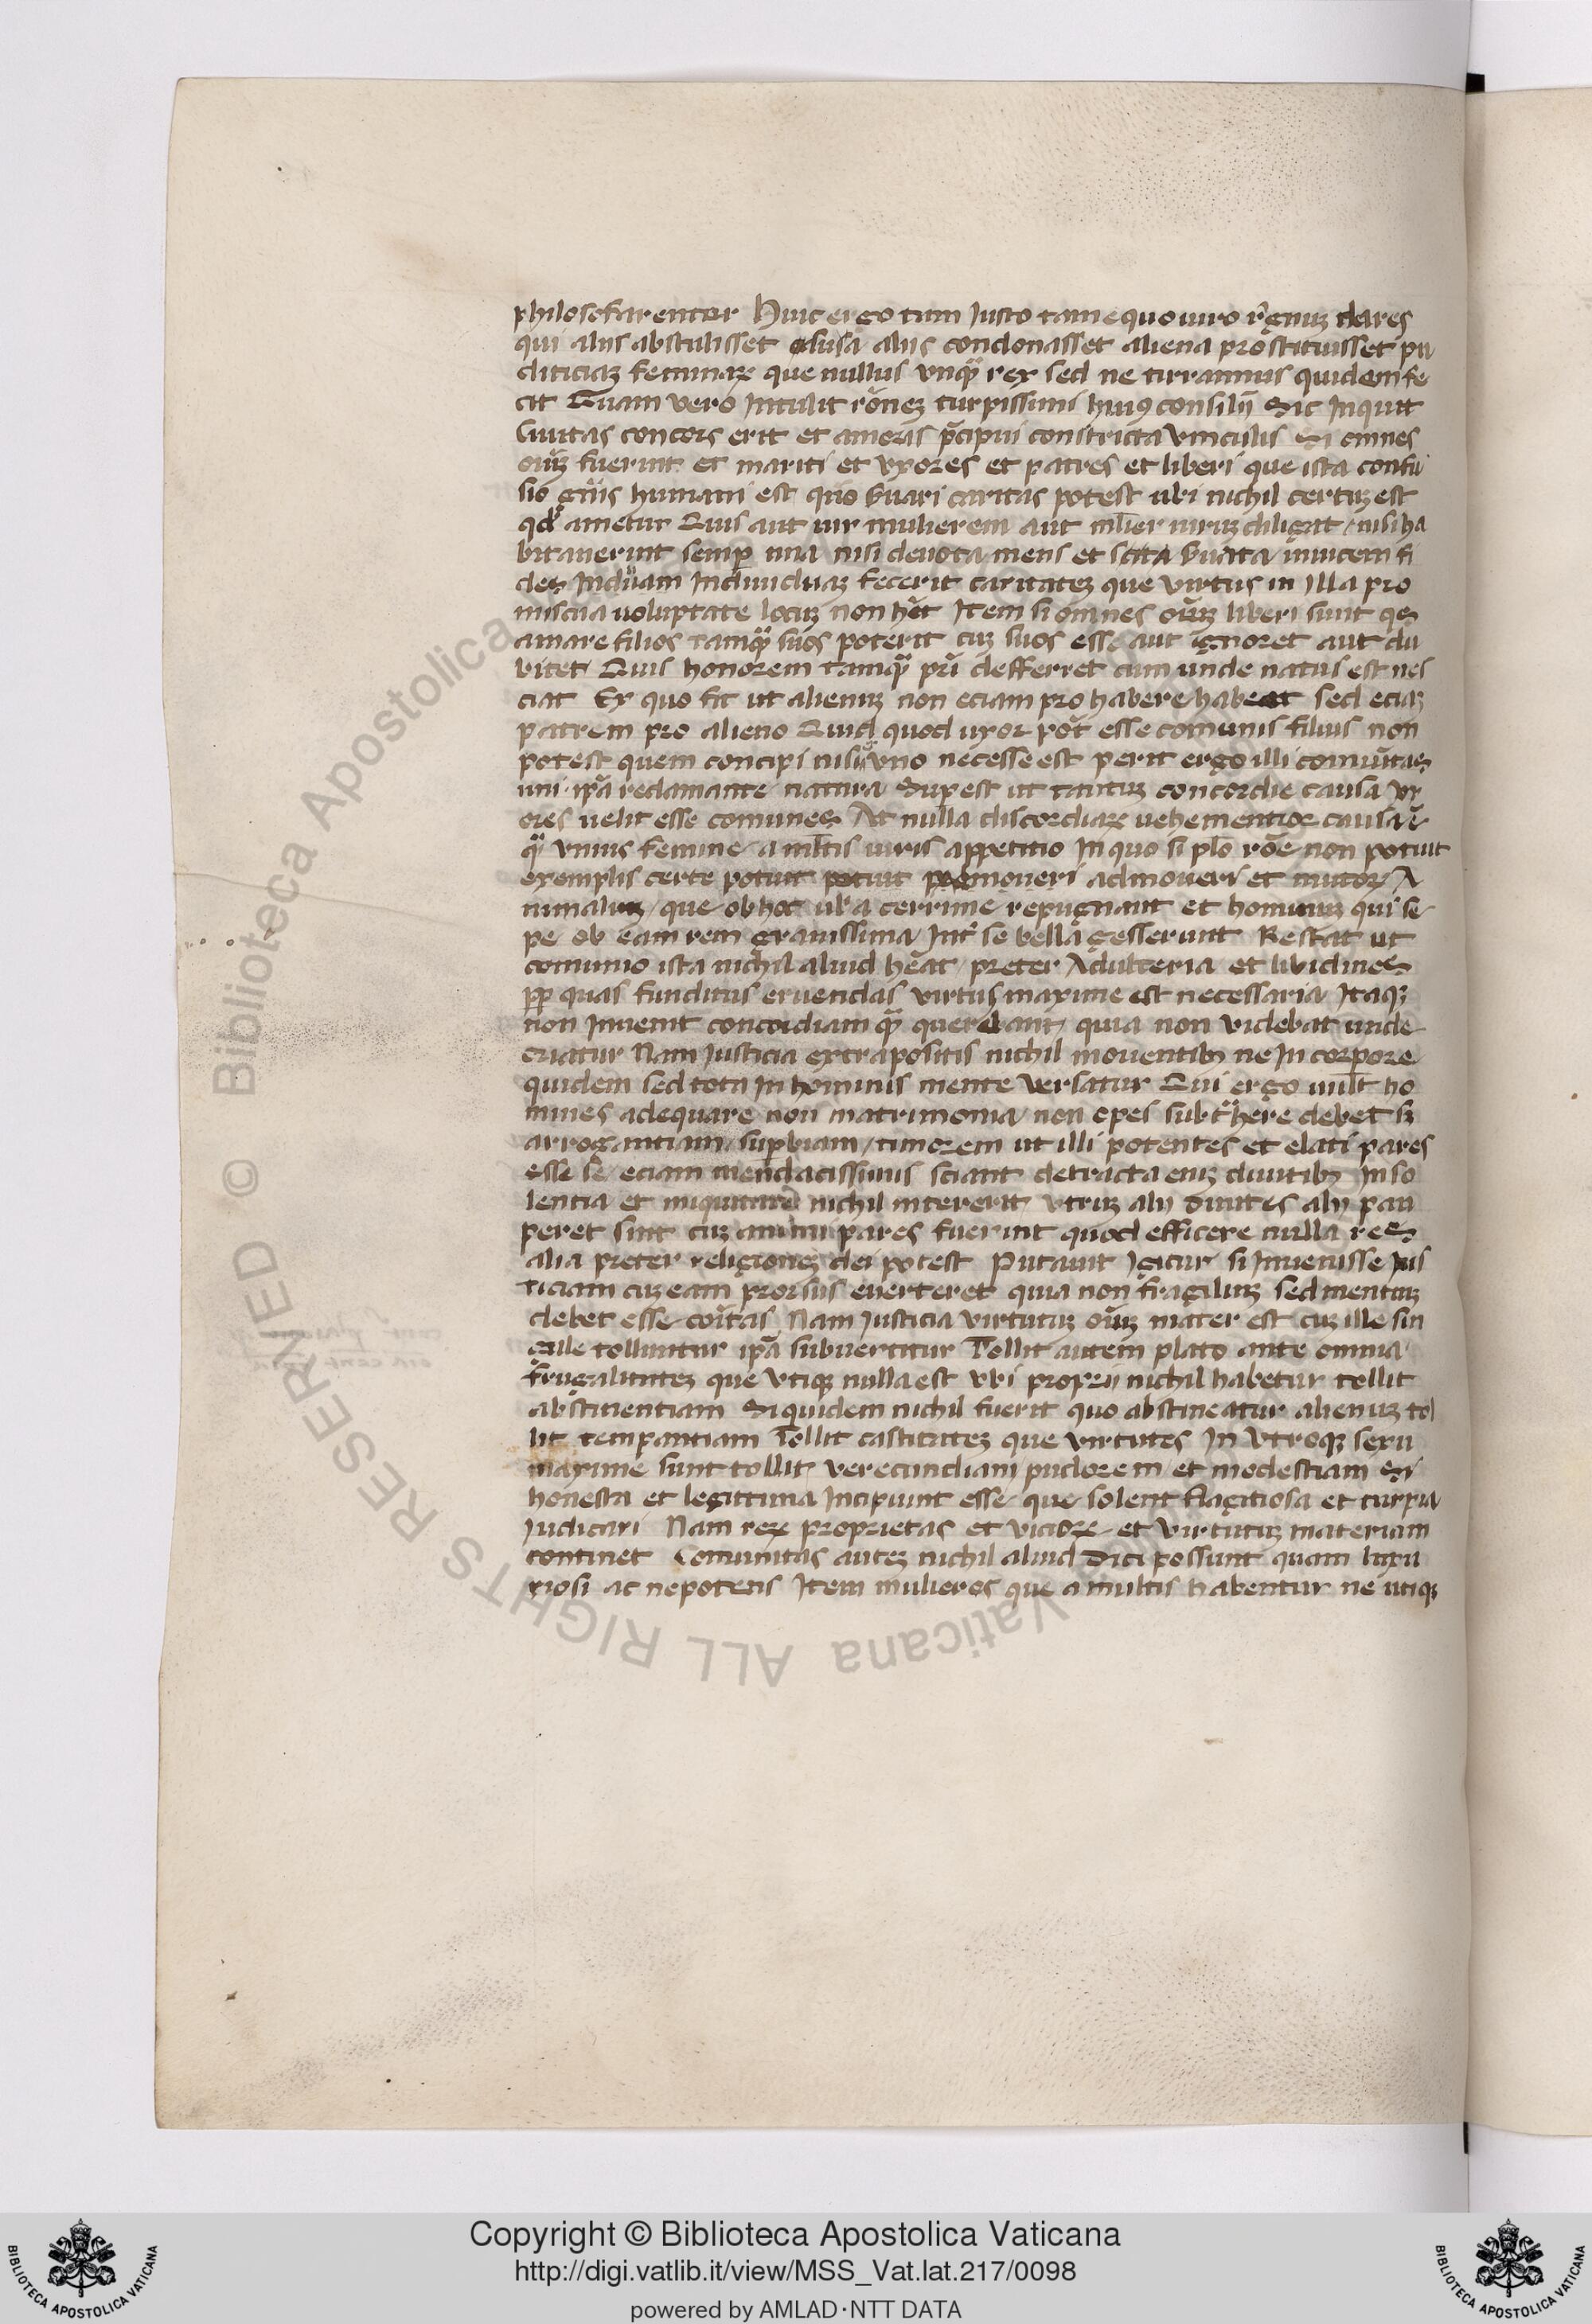 philosofarentur Huic ergo tum Justo tam equo uiro r̄gnuʒ dares
qui alijs abstulisset alijs condonasset aliena prostituisset pu
diticiaʒ feminaꝝ que nullus vnqȝ rex sed ne tirrannus quidem fe
cit Quam vero Intulit rōneʒ turpissimi huiꝰ consilij Sic Inquit
Ciuitas concors erit et amoris p̄cipui constricta vinculis Si omnes
oīuʒ fuerint et mariti et vxores et patres et liberi que ista confu
sio gn̄is humani est quo suari caritas potest ubi nichil certuʒ est
qd̄ ametur Quis aut uir mulierem aut ml̄ier uiruʒ diligat nisi ha
bitauerint semꝑ una nisi deuota mens et s̄uata inuicem fi
des Indiuiduaʒ fecerit caritateʒ que virtus in illa pro
miscua uoluptate locuʒ non h̄et Item si omnes oīuʒ liberi sunt qs
amare filios tamqȝ suos poterit cuʒ suos esse aut ignoret aut du
bitet Quis honorem tamqȝ pr̄i defferret cum unde natus est nes
ciat Ex quo fit ut alienuʒ non eciam pro habere habeat sed eciaʒ
patrem pro alieno Quid quod uxor pōt esse comunis filius non
potest quem concipi nisi ex uno necesse est perit ergo illi comūitas
uni ip̄a reclamante natura Supest ut tantuʒ concordie causa vx
ores uelit esse comunes At nulla discordiaꝝ uehementior causa
qȝ vnius femine a ml̄tis uiris appetitio In quo si plō rōe non potuit
exemplis certe potuit potuit admoueri et mutoꝝ A
nimaliuʒ que ob hoc acerrime repugnant et hominuʒ qui se
pe ob eam rem grauissima Int̄ se bella gesserunt Restat ut
comunio ista nichil aliud h̄eat preter Adulteria et libidines
ꝓp quas funditus eruendas virtus maxime est necessaria Itaqȝ
non Inuenit concordiam qȝ querebant quia non videbat unde
Nam Justicia extra positis nichil mouentibꝫ ne In corpore
quidem sed tota In hominis mente versatur Qui ergo uult ho
mines adequare non matrimonia non opes subt̄here debet sʒ
arrogantiam supbiam timorem ut illi potentes et elati pares
esse se eciam mendacissimis sciant detracta eniʒ diuitibꝫ Inso
lentia et iniquitate nichil intererit vtruʒ alij diuites alij pau
peret sint cuʒ animi pares fuerint quod efficere nulla res
alia preter religioneʒ dei potest Putauit Igitur si Inuenisse Jus
ticiam cuʒ eam prorsus euerteret quia non fragiliuʒ sed mentiuʒ
debet esse coītas Nam Justicia virtutuʒ oīuʒ mater est cuʒ ille sin
gule tolluntur ip̄a subuertitur Tollit autem plato ante omnia
frugalitateʒ que vtiqȝ nulla est vbi proprij nichil habetur tollit
abstinentiam Siquidem nichil fuerit quo abstineatur alienuʒ tol
lit tempantiam Tollit castitateʒ que virtutes In vtroqȝ sexu
maxime sunt tollit verecundiam pudorem et modestiam Si
honesta et legittima Incipiunt esse que solent flagitiosa et turpia
Judicari Nam reꝝ proprietas et vicioꝝ et virtutuʒ materiam
continet Comunitas auteʒ nichil aliud Dici possunt quam luxu
riosi ac nepotens Item mulieres que a multis habentur ne utiqȝ
© Biblioteca Apostolica Vaticana ALL RIGHTS RESERVED
Copyright © Biblioteca Apostolica Vaticana
http://digi.vatlib.it/view/MSS_Vat.lat.217/0098
powered by AMLAD·NTT DATA
BIBLIOTECA APOSTOLICA VATICANA
BIBLIOTECA APOSTOLICA VATICANA